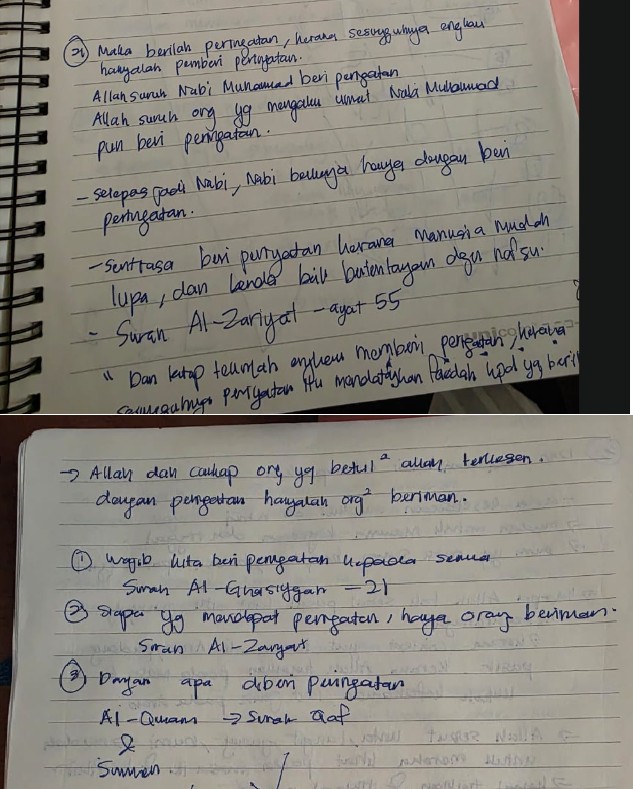 21 Maka berilah peringatan, kerana sesungguhnya engkau
hanyalah pemberi peringatan.
Allah suruh Nabi Muhammad beri peringatan
Allah suruh org yg mengaku umat Nabi Muhammad
pun beri peringatan.
- selepas jadi Nabi, Nabi bekerja hanya dengan beri
peringatan.
- Sentiasa beri peringatan kerana manusia mudah
lupa, dan benda baik bertentangan dgn nafsu.
- Surah Al-Zariyat - ayat 55
" Dan tetap teruslah engkau memberi peringatan, kerana
sesungguhnya peringatan itu mendatangkan faedah kpd yg beri
→ Allah dah cakap org yg betul² allah, terkesan.
dengan peringatan hanyalah org² beriman.
① Wajib kita beri peringatan kepada semua
Surah Al-Ghasiyyah - 21
② Siapa yg mendapat peringatan, hanya orang beriman.
Surah Al-Zariyat
③ Dengan apa diberi peringatan
Al-Quran → Surah Qaf
&
Sunnah.